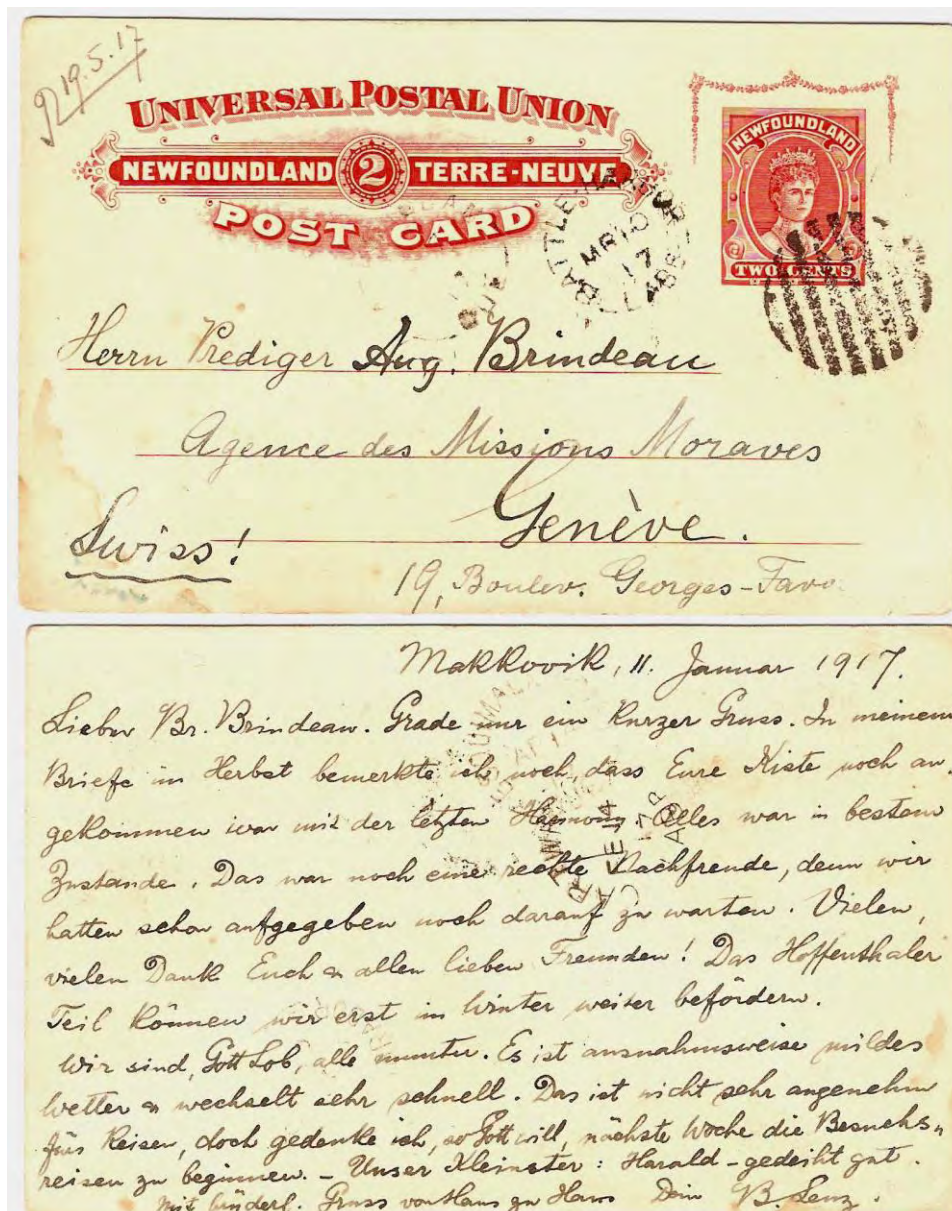 19.5.17
UNIVERSAL POSTAL UNION
NEWFOUNDLAND 2 TERRE-NEUVE
POST CARD
NEWFOUNDLAND
TWO CENTS
BATTLE HARBOR
MR 10
17
LABR
Herrn Prediger Aug. Brindeau
Agence des Missions Moraves
Genève.
Swiss!
19, Boulev. Georges-Favo
Makkovik, 11. Januar 1917.
Lieber Br. Brindeau. Grade nur ein kurzer Gruss. In meinem
Briefe im Herbst bemerkte ich noch, dass Eure Kiste noch an
gekommen war mit der letzten Harmony. Alles war in bestem
Zustande. Das war noch eine rechte Nachfreude, denn wir
hatten schon aufgegeben noch darauf zu warten. Vielen,
vielen Dank Euch & allen lieben Freunden! Das Hoffenthaler
Teil können wir erst im Winter weiter befördern.
Wir sind, Gott Lob, alle munter. Es ist ausnahmsweise mildes
Wetter & wechselt sehr schnell. Das ist nicht sehr angenehm
fürs Reisen, doch gedenke ich, so Gott will, nächste Woche die Besuchs-
reisen zu beginnen. - Unser Kleinster: Harald - gedeiht gut.
Mit brüderl. Gruss von Haus zu Haus Dein B. Lenz.